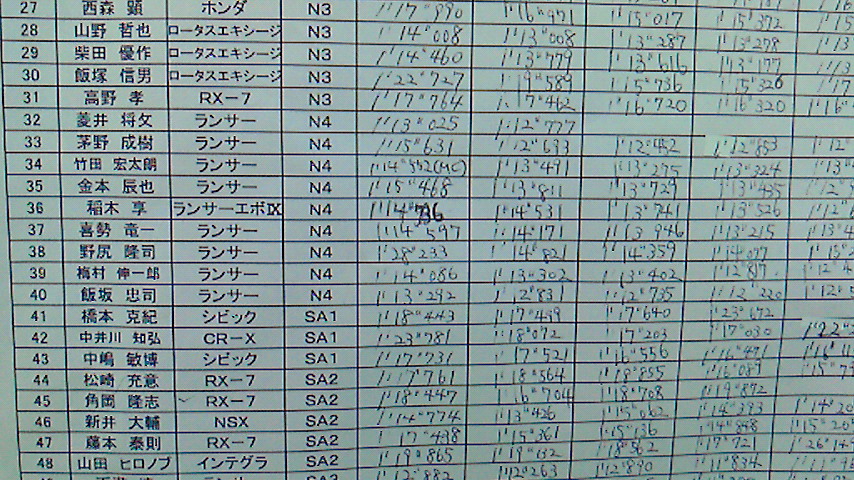 27 西森 顕 ホンダ N3 1'17"990 1'16"921 1'15"017 1'15"372
28 山野 哲也 ロータスエキシージ N3 1'14"008 1'13"008 1'13"287 1'13"278 1'13
29 柴田 優作 ロータスエキシージ N3 1'14"460 1'13"779 1'13"616 1'13"177 1'13
30 飯塚 信男 ロータスエキシージ N3 1'22"727 1'19"589 1'15"736 1'15"326 1'17
31 高野 孝 RX-7 N3 1'17"764 1'17"462 1'16"720 1'16"320 1'16"
32 菱井 将文 ランサー N4 1'13"025 1'12"777
33 茅野 成樹 ランサー N4 1'15"631 1'12"633 1'12"452 1'12"853 1'12"
34 竹田 宏太朗 ランサー N4 1'14"552(MC) 1'13"491 1'13"275 1'13"324 1'13"
35 金本 辰也 ランサー N4 1'15"468 1'13"811 1'13"729 1'13"435 1'12"
36 稲木 享 ランサーエボⅨ N4 1'14"736 1'14"531 1'13"741 1'13"526 1'12"
37 喜勢 竜一 ランサー N4 1'14"597 1'14"171 1'13"946 1'13"215 1'13"4
38 野尻 隆司 ランサー N4 1'28"233 1'14"821 1'14"359 1'14"077 1'15"
39 梅村 伸一郎 ランサー N4 1'14"086 1'13"302 1'13"402 1'12"817 1'12"4
40 飯坂 忠司 ランサー N4 1'13"292 1'12"831 1'12"735 1'12"220 1'12"5
41 橋本 克紀 シビック SA1 1'18"443 1'17"459 1'17"640 1'23"672
42 中井川 知弘 CR-X SA1 1'23"781 1'18"072 1'17"203 1'17"030 1'22"
43 中嶋 敏博 シビック SA1 1'17"731 1'17"521 1'16"556 1'16"471 1'16"
44 松崎 充意 RX-7 SA2 1'17"761 1'18"564 1'18"855 1'16"089 1'15"7
45 角岡 隆志 RX-7 SA2 1'18"447 1'16"704 1'18"708 1'19"872
46 新井 大輔 NSX SA2 1'14"774 1'13"426 1'15"062 1'14"393 1'14"20
47 藤本 泰則 RX-7 SA2 1'17"438 1'15"361 1'15"136 1'15"20
48 山田 ヒロノブ インテグラ SA2 1'19"865 1'19"132 1'18"562 1'17"721 1'26"14
1'12"882 1'12"263 1'12"890 1'11"834 1'11"9